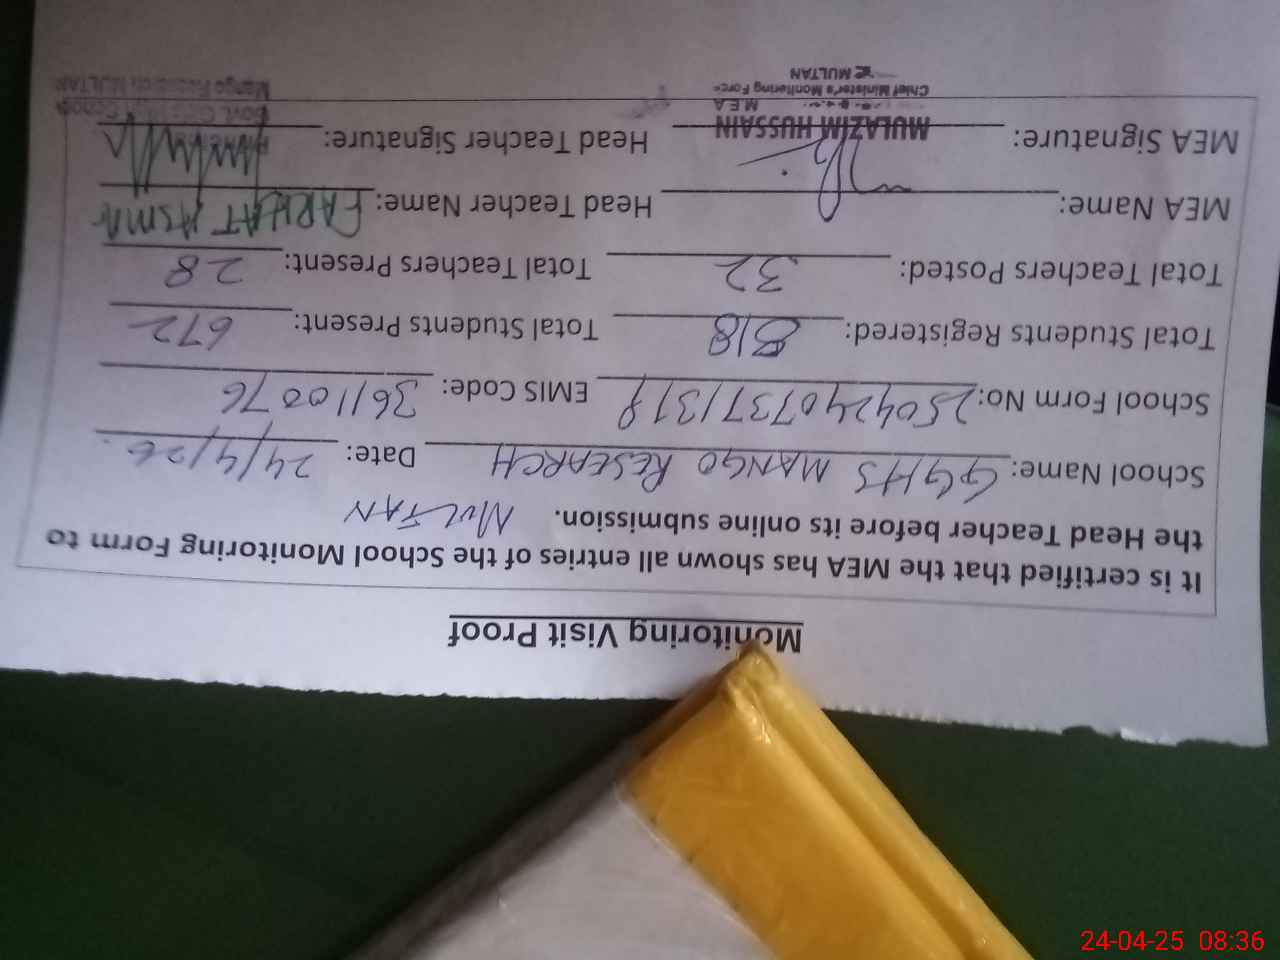 Monitoring Visit Proof
It is certified that the MEA has shown all entries of the School Monitoring Form to
the Head Teacher before its online submission. MULTAN
School Name: GGHS MANGO RESEARCH Date: 24/4/25
School Form No: 25042407371319 EMIS Code: 36110076
Total Students Registered: 818 Total Students Present: 672
Total Teachers Posted: 32 Total Teachers Present: 28
MEA Name: Head Teacher Name: FARHAT ASMA
MEA Signature: Head Teacher Signature:
MULAZIM HUSSAIN
M E A
Chief Minister's Monitoring Force
MULTAN
Mango Research, MULTAN
24-04-25 08:36